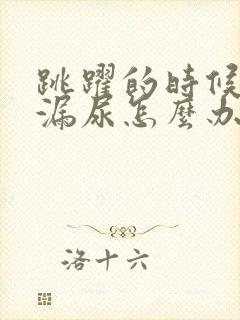 跳躍的時候
漏尿怎麼办
洛十六